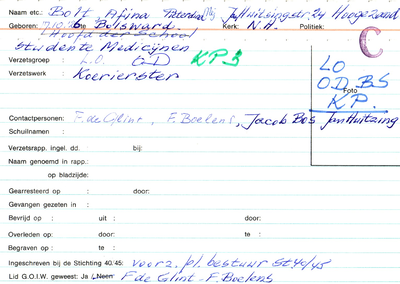 Naam etc.: Bolt Afina Jan Huitsingstr 24 Hoogezand
Geboren: 7.10. Bolsward. Kerk: N.H. Politiek:
Hoofd der School
Studente Medicijnen
C
Verzetsgroep : L.O. GD KP3
Verzetswerk : Koerierster
LO
O.D. BS
Foto
KP.
Contactpersonen: F. de Glint, F. Boelens, Jacob Bos Jan Huitzing
Schuilnaam :
Verzetsrapp. ingel. dd. : bij:
Naam genoemd in rapp.:
op bladzijde:
Gearresteerd op : door:
Gevangen gezeten in :
Bevrijd op : uit : door:
Overleden op: door: te :
Begraven op : te :
Ingeschreven bij de Stichting 40/45: voorz. pl. bestuur St 40/45
Lid G.O.I.W. geweest: Ja Neen F de Glint - F. Boelens